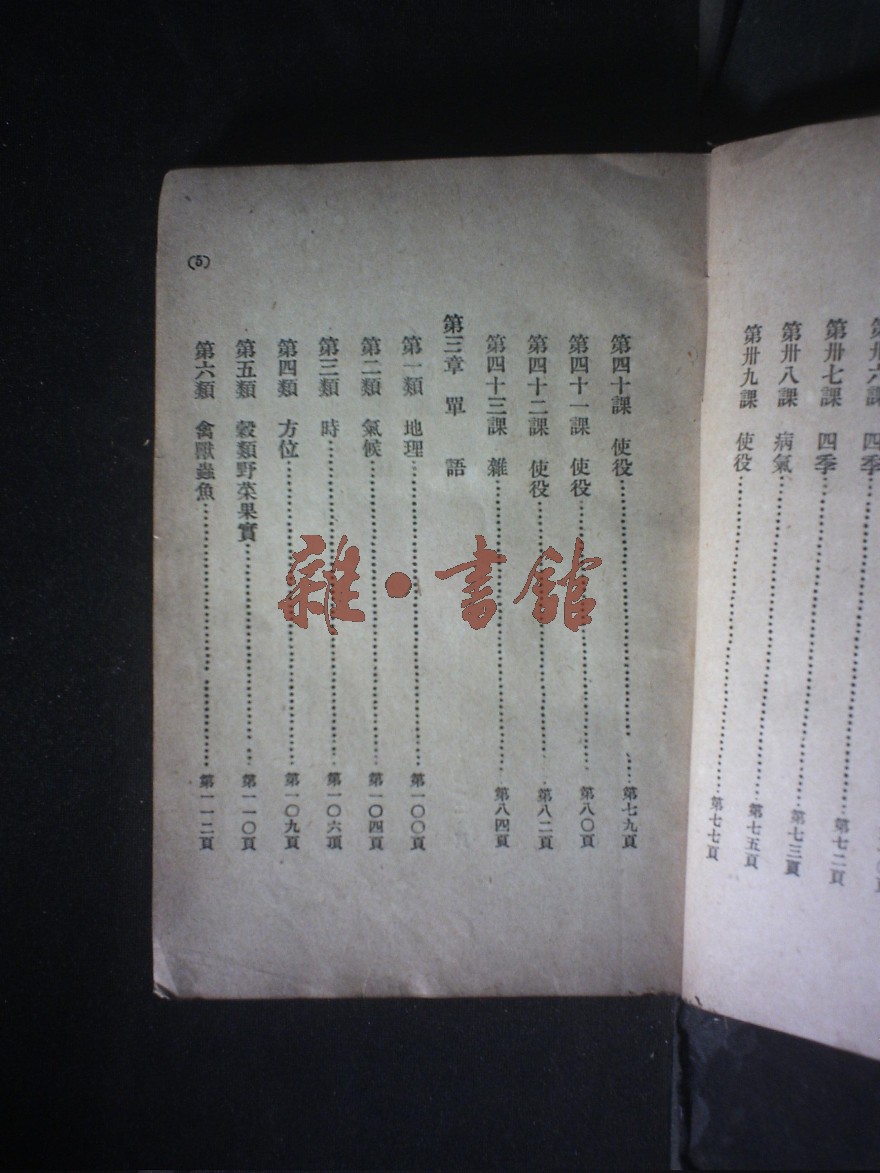 第卅七課 四季……第七二頁
第卅八課 病氣……第七三頁
第卅九課 使役……第七五頁
第七七頁
第四十課 使役……第七九頁
第四十一課 使役……第八〇頁
第四十二課 使役……第八二頁
第四十三課 雜……第八四頁
第三章 單語
第一類 地理……第一〇〇頁
第二類 氣候……第一〇四頁
第三類 時……第一〇六項
第四類 方位……第一〇九頁
第五類 穀類野菜果實……第一一〇頁
第六類 禽獸蟲魚……第一一二頁
(5)
雜·書館